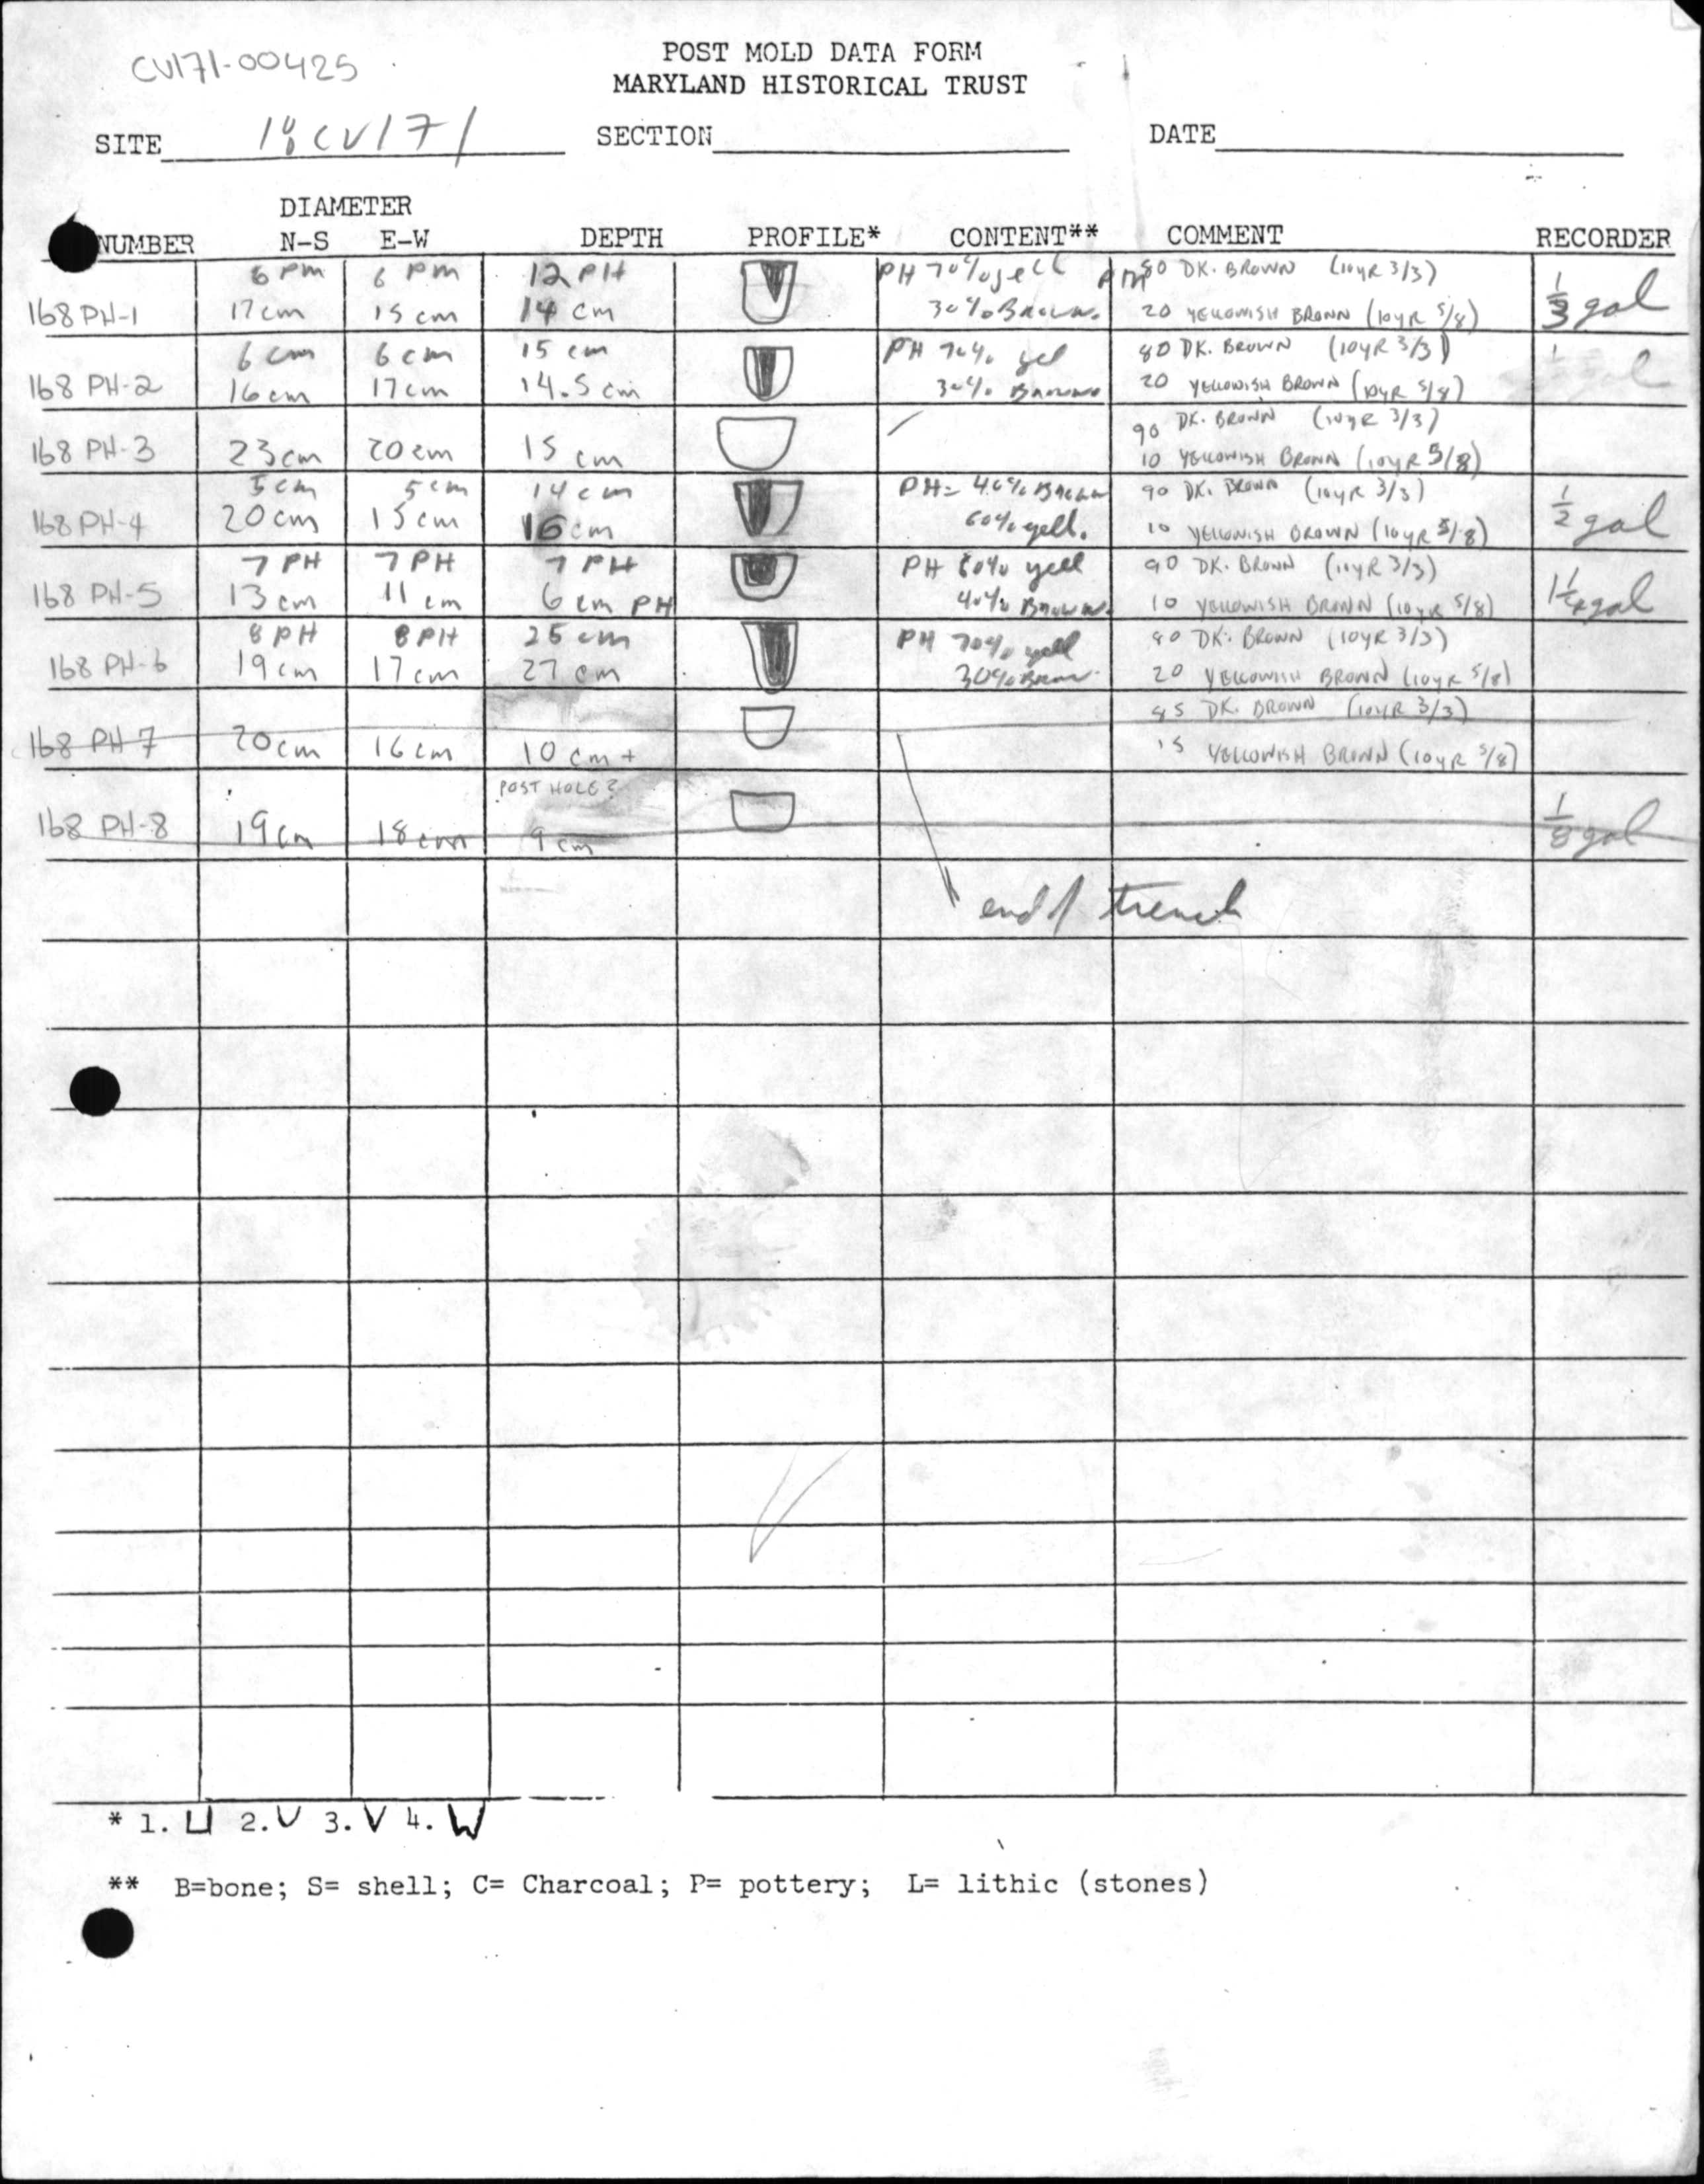 CV171-00425
POST MOLD DATA FORM
MARYLAND HISTORICAL TRUST
SITE 18CV171 SECTION DATE
DIAMETER
NUMBER N-S E-W DEPTH PROFILE* CONTENT** COMMENT RECORDER
6 PM 6 PM 12 PH PH 70% yell PM 80 DK. BROWN (10YR 3/3)
168 PH-1 17cm 15cm 14 cm 30% Brown. 20 YELLOWISH BROWN (10YR 5/8) 1/3 gal
6 cm 6 cm 15 cm PH 70% yel 80 DK. BROWN (10YR 3/3)
168 PH-2 16cm 17cm 14.5 cm 30% Brown 20 YELLOWISH BROWN (10YR 5/8) gal
90 DK. BROWN (10YR 3/3)
168 PH-3 23cm 20cm 15 cm 10 YELLOWISH BROWN (10YR 5/8)
5cm 5cm 14cm PH= 40% Brown 90 DK. BROWN (10YR 3/3)
168 PH-4 20cm 15cm 16cm 60% yell. 10 YELLOWISH BROWN (10YR 5/8) 1/2 gal
7 PH 7 PH 7 PH PH 60% yell 90 DK. BROWN (10YR 3/3)
168 PH-5 13cm 11cm 6cm PH 40% Brown. 10 YELLOWISH BROWN (10YR 5/8) 1 1/4 gal
8 PH 8 PH 25 cm PH 70% yell 80 DK. BROWN (10YR 3/3)
168 PH-6 19cm 17cm 27 cm 30% Brown 20 YELLOWISH BROWN (10YR 5/8)
85 DK. BROWN (10YR 3/3)
168 PH 7 20cm 16cm 10 cm + 15 YELLOWISH BROWN (10YR 5/8)
POST HOLE?
168 PH-8 19cm 18cm 9 cm 1/8 gal
end of trench
* 1. U 2. U 3. V 4. W
** B=bone; S= shell; C= Charcoal; P= pottery; L= lithic (stones)